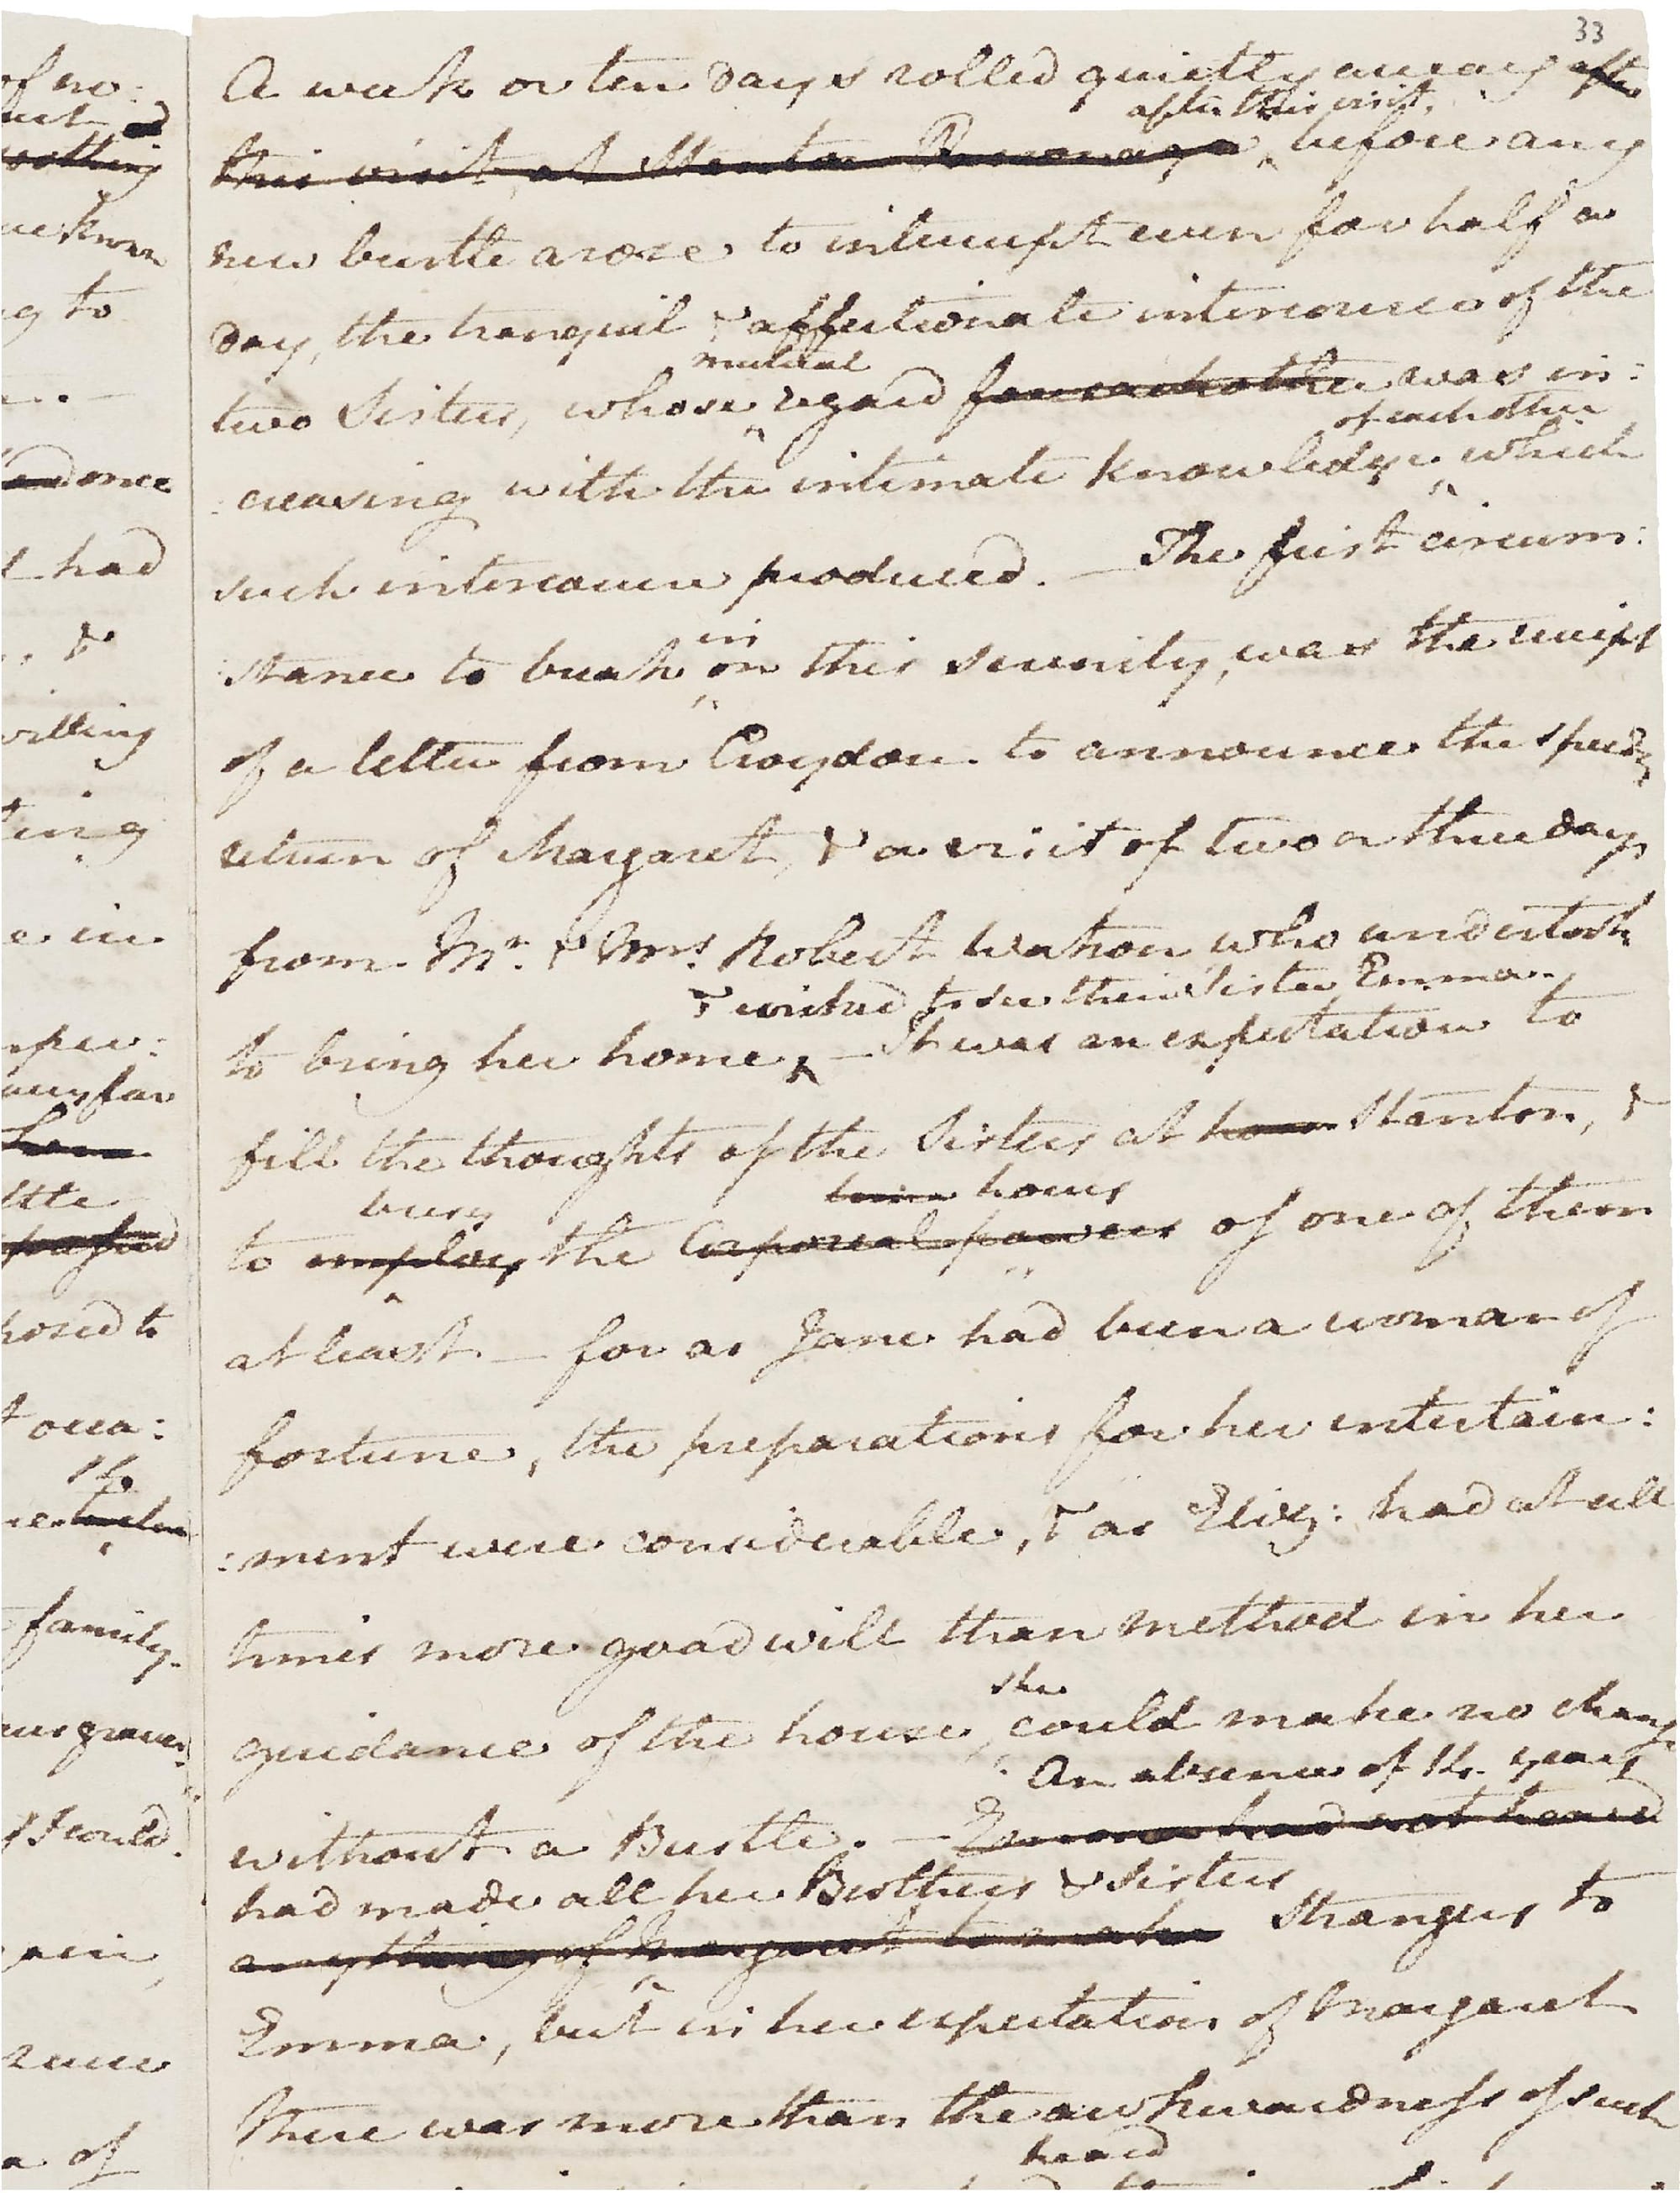 33
A week or ten days rolled quietly away after
after this visit,
this visit at Stanton Parsonage before any
new bustle arose to interrupt even for half a
day, the tranquil & affectionate intercourse of the
mutual
two Sisters, whose regard for each other was in:
of each other
:creasing with the intimate knowledge which
such intercourse produced. — The first circum:
in
:stance to break on this serenity, was the receipt
of a letter from Croydon to announce the speedy
return of Margaret, & a visit of two or three days
from Mr. & Mrs. Robert Watson, who undertook
& wished to see their Sister Emma.
to bring her home — It was an expectation to
fill the thoughts of the Sisters at home Stanton, &
busy hours
to employ the Corporeal powers of one of them
at least — for as Jane had been a woman of
fortune, the preparations for her entertain:
:ment were considerable, & as Eliz: had at all
times more good will than method in her
she
guidance of the house, could make no change
An absence of 14 years
without a Bustle. — Emma had not heard
had made all her Brothers & Sisters
anything of Margaret to make Strangers to
Emma, but in her expectation of Margaret
there was more than the awkwardness of such
heard
of no:
nothing
ing to
once
had
&
willing
ting
e in
any far
posed to
t occa:
14
family.
I could
a of